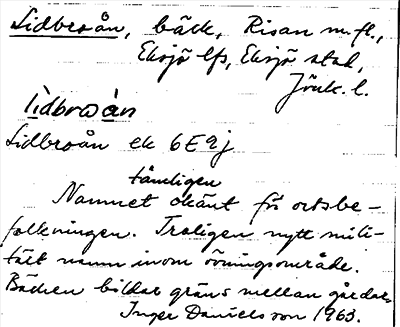 Lidbroån, bäck, Risan m.fl.,
Eksjö lfs, Eksjö stad,
Jönk. l.
lìdbrωàn
Lidbroån ek 6E9j
tämligen
Namnet okänt för ortsbe-
folkningen. Troligen nytt mili-
tärt namn inom övningsområde.
Bäcken bildar gräns mellan gårdar.
Inger Danielsson 1963.